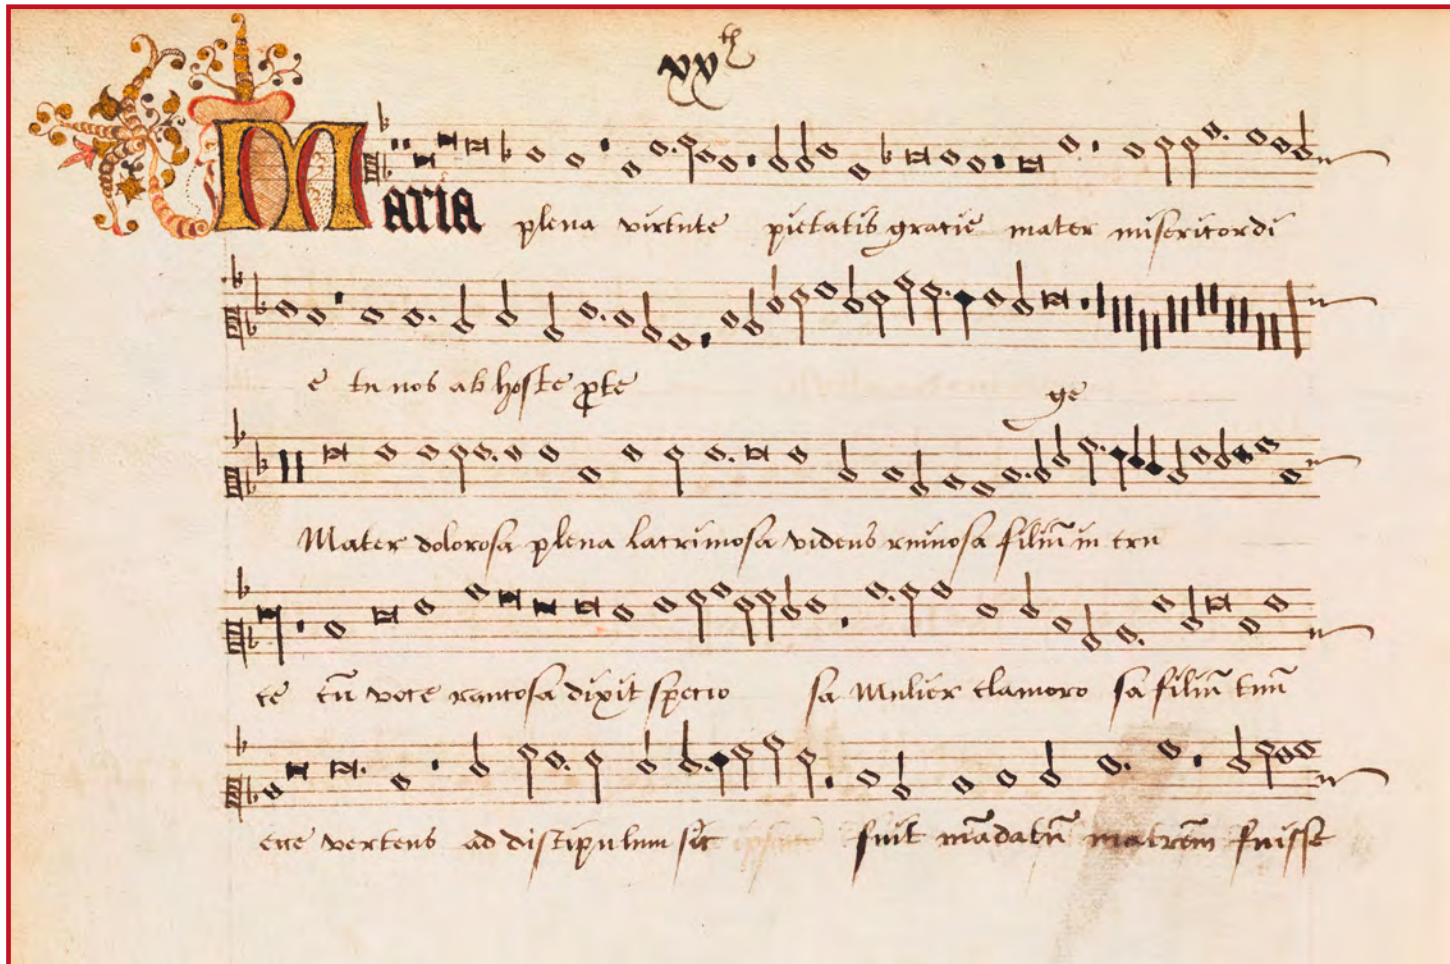 xxth
Maria plena virtute pietatis gracie mater misericordi
e tu nos ab hoste ꝓte ge
Mater dolorosa plena lacrimosa videns ruinosa filiū in cru
ce cū voce rancosa dixit specio sa Mulier clamoro sa filiū tuū
ecce vertens ad discipulum sic fuit mādatū matrem fuisse